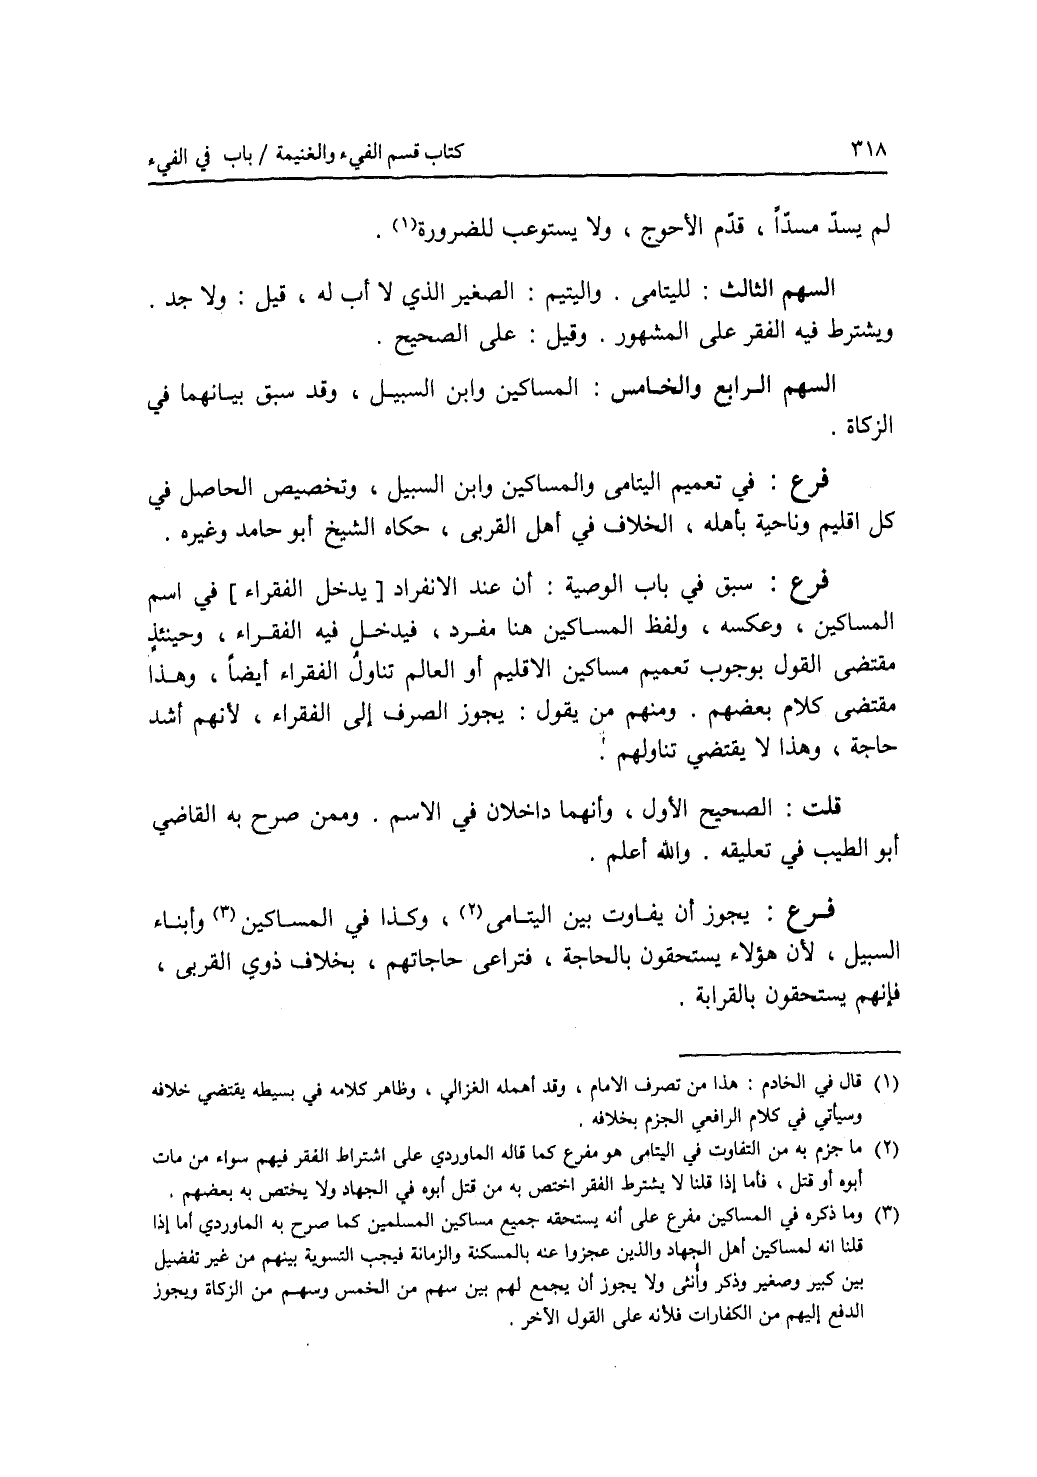 ٣١٨
كتاب قسم الفيء والغنيمة / باب في الفيء
لم يسدّ مسدّاً ، قدّم الأحوج ، ولا يستوعب للضرورة(١) .
السهم الثالث : لليتامى . واليتيم : الصغير الذي لا أب له ، قيل : ولا جد .
ويشترط فيه الفقر على المشهور . وقيل : على الصحيح .
السهم الرابع والخامس : المساكين وابن السبيل ، وقد سبق بيانهما في
الزكاة .
فرع : في تعميم اليتامى والمساكين وابن السبيل ، وتخصيص الحاصل في
كل اقليم وناحية بأهله ، الخلاف في أهل القربى ، حكاه الشيخ أبو حامد وغيره .
فرع : سبق في باب الوصية : أن عند الانفراد [ يدخل الفقراء ] في اسم
المساكين ، وعكسه ، ولفظ المساكين هنا مفرد ، فيدخل فيه الفقراء ، وحينئذٍ
مقتضى القول بوجوب تعميم مساكين الاقليم أو العالم تناولُ الفقراء أيضاً ، وهذا
مقتضى كلام بعضهم . ومنهم من يقول : يجوز الصرف إلى الفقراء ، لأنهم أشد
حاجة ، وهذا لا يقتضي تناولهم .
قلت : الصحيح الأول ، وأنهما داخلان في الاسم . وممن صرح به القاضي
أبو الطيب في تعليقه . والله أعلم .
فرع : يجوز أن يفاوت بين اليتامى(٢) ، وكذا في المساكين(٣) وأبناء
السبيل ، لأن هؤلاء يستحقون بالحاجة ، فتراعى حاجاتهم ، بخلاف ذوي القربى ،
فإنهم يستحقون بالقرابة .
(١) قال في الخادم : هذا من تصرف الامام ، وقد أهمله الغزالي ، وظاهر كلامه في بسيطه يقتضي خلافه
وسيأتي في كلام الرافعي الجزم بخلافه .
(٢) ما جزم به من التفاوت في اليتامى هو مفرع كما قاله الماوردي على اشتراط الفقر فيهم سواء من مات
أبوه أو قتل ، فأما إذا قلنا لا يشترط الفقر اختص به من قتل أبوه في الجهاد ولا يختص به بعضهم .
(٣) وما ذكره في المساكين مفرع على أنه يستحقه جميع مساكين المسلمين كما صرح به الماوردي أما إذا
قلنا انه لمساكين أهل الجهاد والذين عجزوا عنه بالمسكنة والزمانة فيجب التسوية بينهم من غير تفضيل
بين كبير وصغير وذكر وأنثى ولا يجوز أن يجمع لهم بين سهم من الخمس وسهم من الزكاة ويجوز
الدفع إليهم من الكفارات فلأنه على القول الآخر .